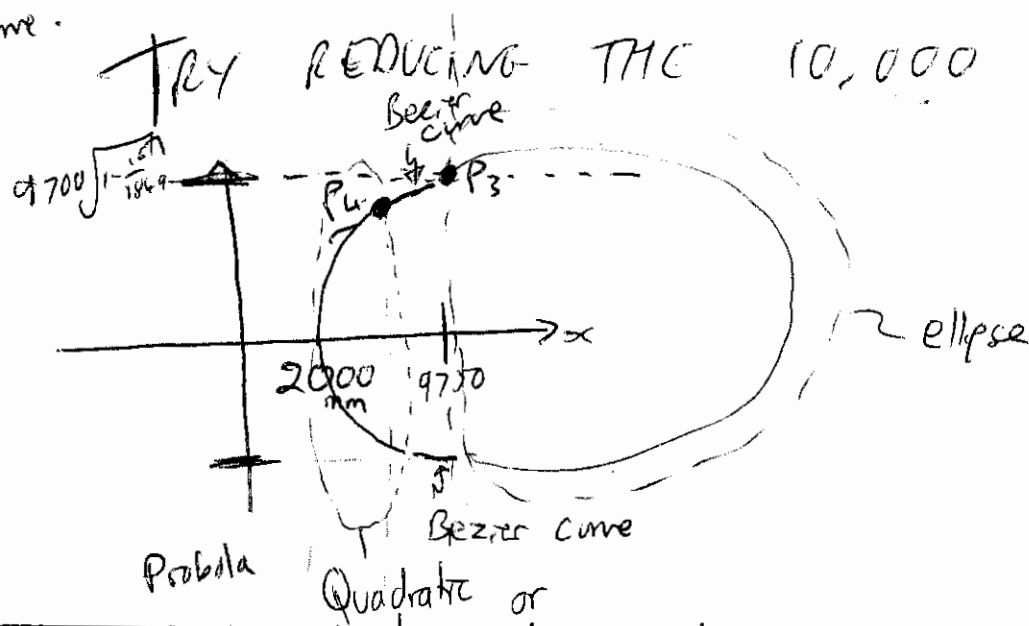 TRY REDUCING THE 10,000
Bezier
curve
P4
P3
x
ellipse
2000
mm
9750
Bezier curve
Probola
Quadratic or